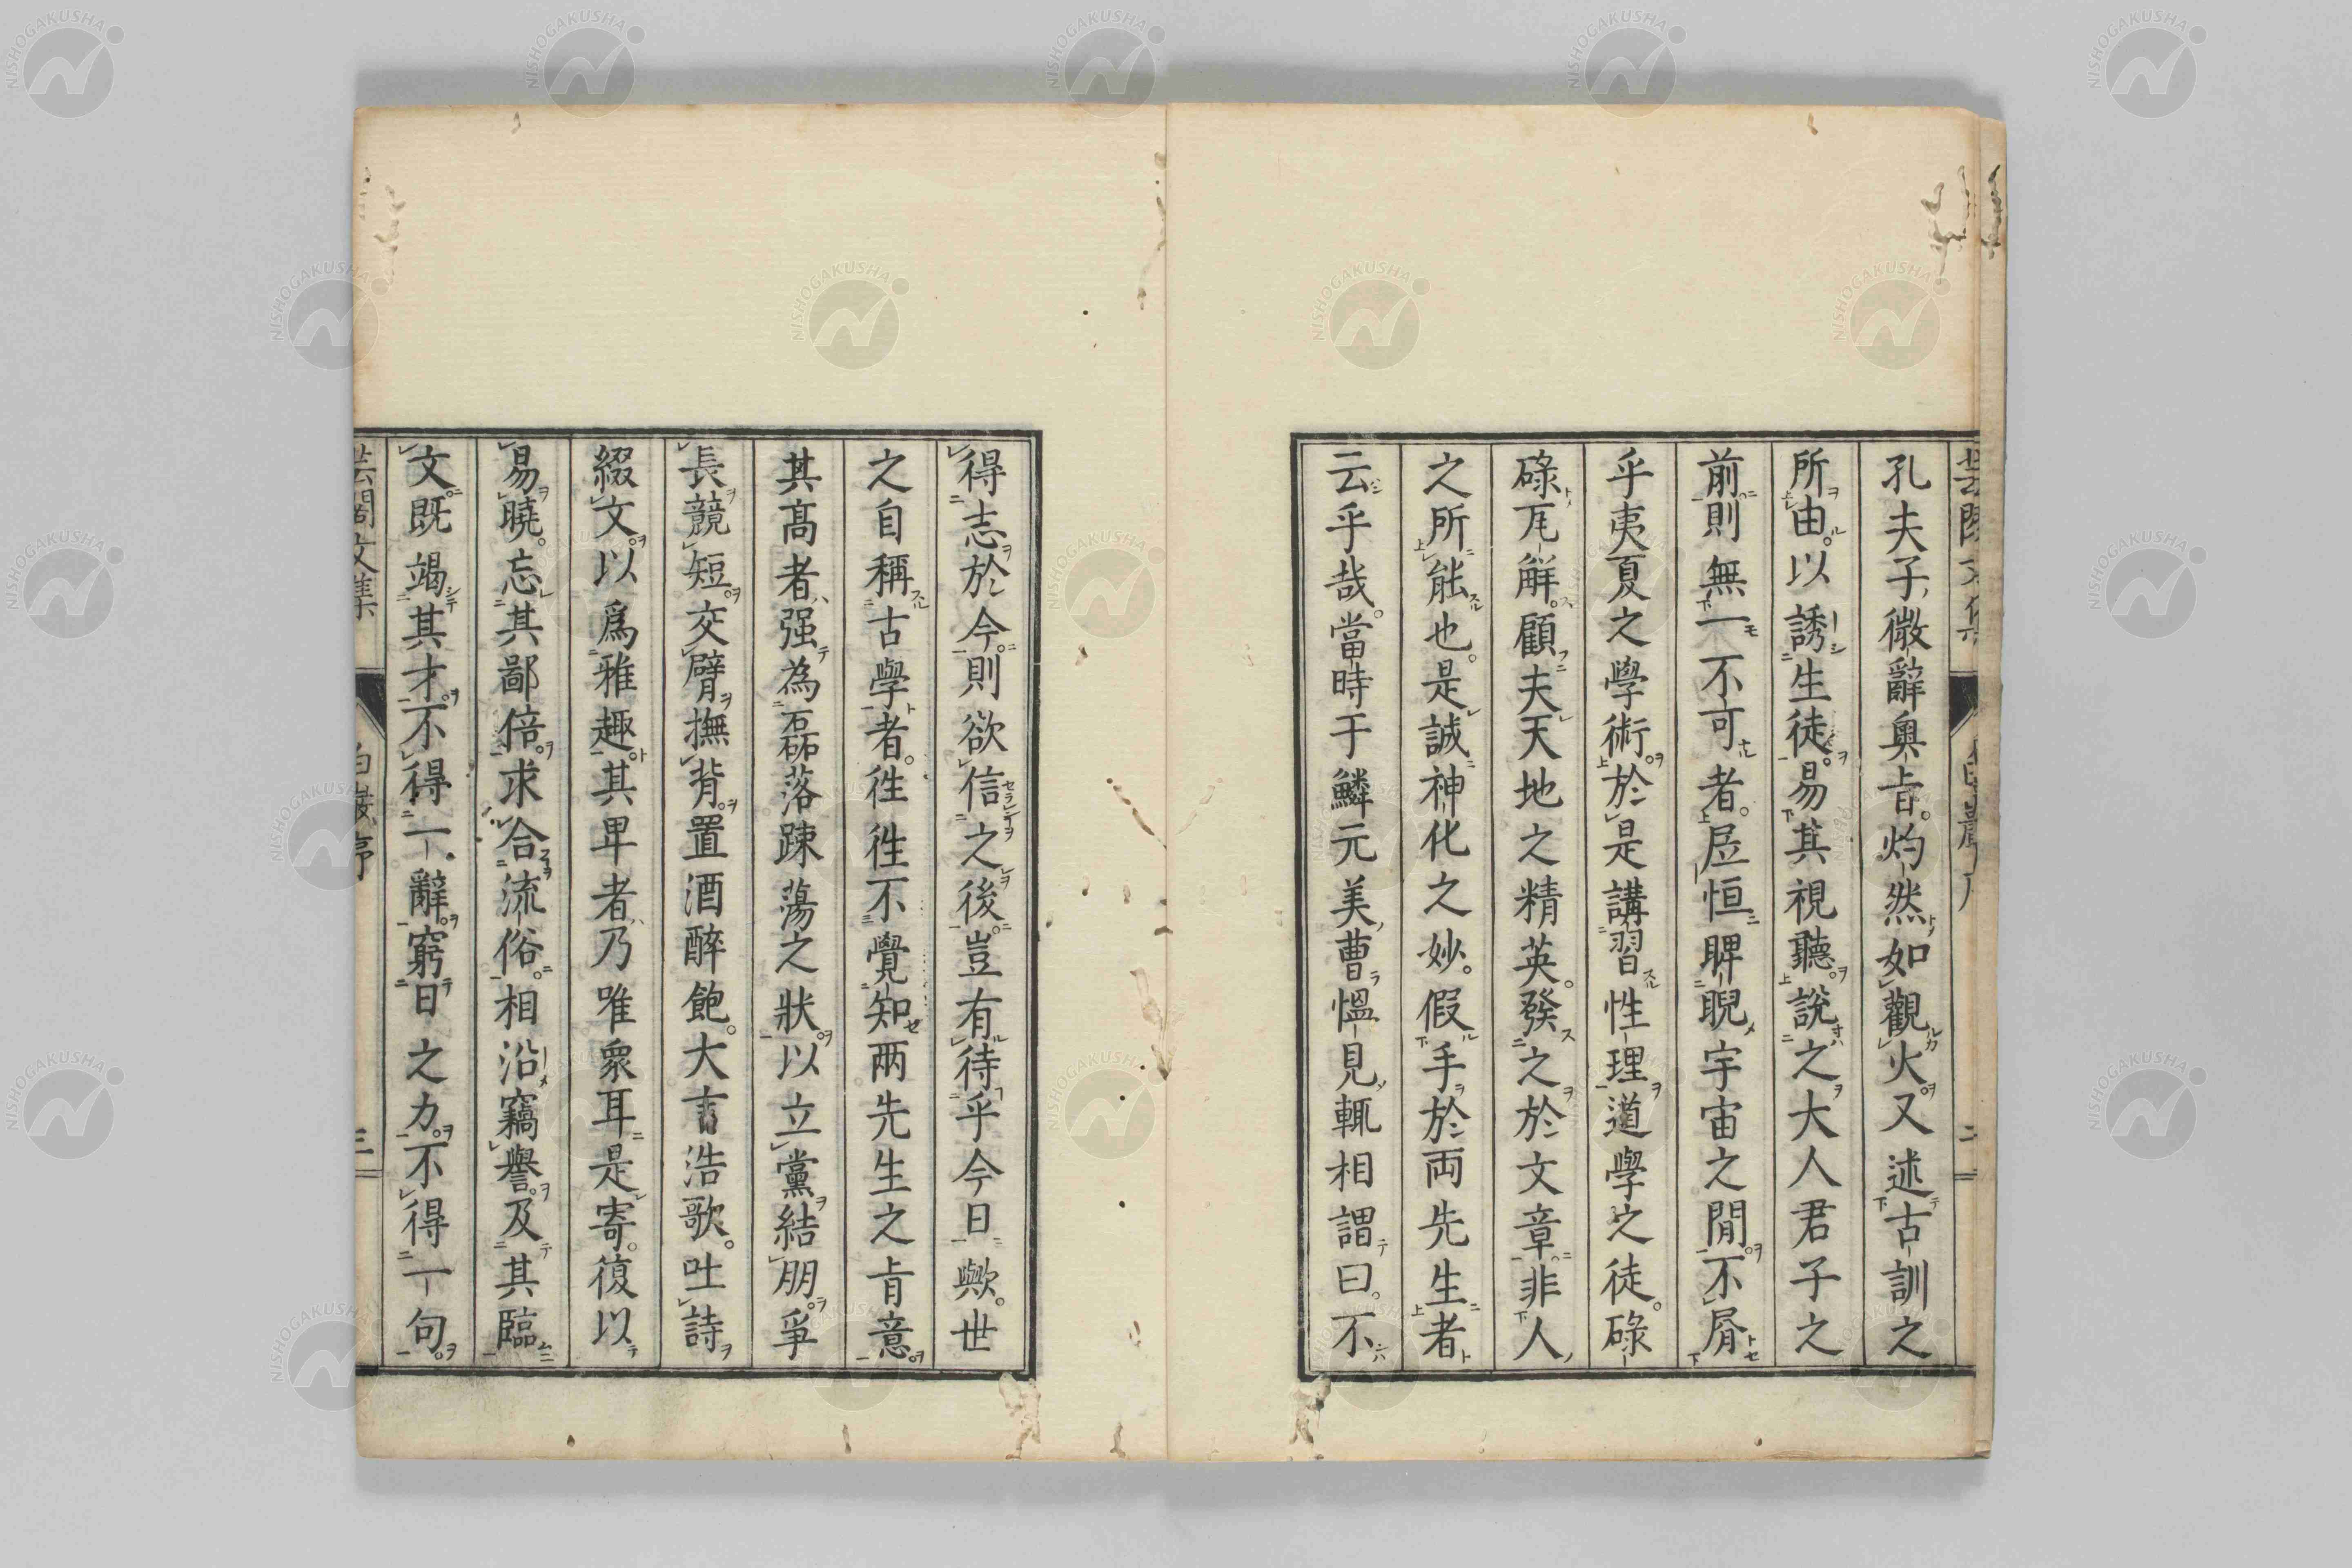 孔夫子微辭奥㫖灼然如觀火又述古訓之
所由以誘生徒易其視聽說之大人君子之
前則無一不可者㞐恒睥睨宇宙之間不屑
乎夷夏之學術於是講習性理道學之徒碌
碌瓦解顧夫天地之精英發之於文章非人
之所能也是誠神化之妙假手於両先生者
云乎哉當時于鱗元美曹愠見輒相謂曰不
得志於今則欲信之後豈有待乎今日歟世
之自稱古學者徃徃不覺知兩先生之㫖意
其髙者强為磊落踈蕩之狀以立黨結朋爭
長競短交臂撫背置酒醉飽大言浩歌吐詩
綴文以爲雅趣其卑者乃唯衆耳是寄復以
易曉忘其鄙倍求合流俗相沿竊譽及其臨
文既竭其才不得一辭窮日之力不得一句
白巖序
三
NISHOGAKUSHA